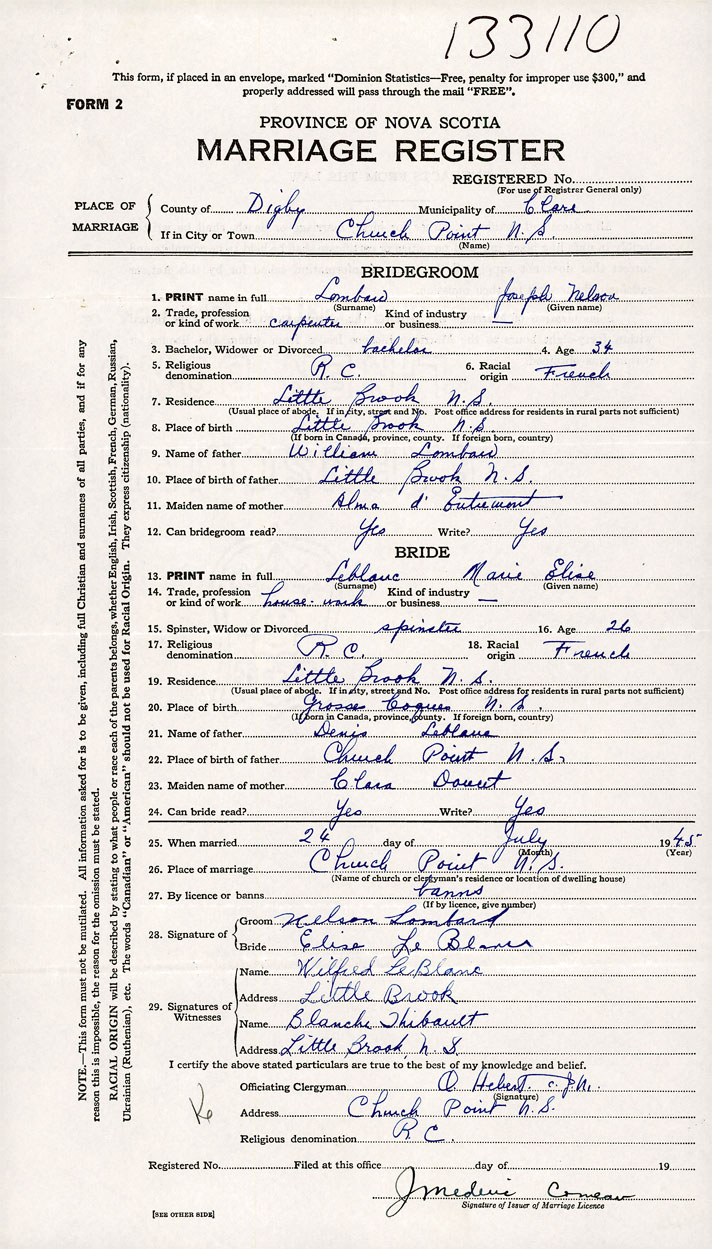 133110
This form, if placed in an envelope, marked “Dominion Statistics—Free, penalty for improper use $300,” and
properly addressed will pass through the mail “FREE”.
FORM 2
PROVINCE OF NOVA SCOTIA
MARRIAGE REGISTER
REGISTERED No.
(For use of Registrar General only)
PLACE OF MARRIAGE
County of Digby Municipality of Clare
If in City or Town Church Point N.S.
(Name)
BRIDEGROOM
1. PRINT name in full Lombard Joseph Nelson
(Surname) (Given name)
2. Trade, profession or kind of work carpenter Kind of industry or business —
3. Bachelor, Widower or Divorced bachelor 4. Age 34
5. Religious denomination R.C. 6. Racial origin French
7. Residence Little Brook N.S.
(Usual place of abode. If in city, street and No. Post office address for residents in rural parts not sufficient)
8. Place of birth Little Brook N.S.
(If born in Canada, province, county. If foreign born, country)
9. Name of father William Lombard
10. Place of birth of father Little Brook N.S.
11. Maiden name of mother Alma d'Entremont
12. Can bridegroom read? Yes Write? Yes
BRIDE
13. PRINT name in full Leblanc Marie Elise
(Surname) (Given name)
14. Trade, profession or kind of work house-work Kind of industry or business —
15. Spinster, Widow or Divorced spinster 16. Age 26
17. Religious denomination R.C. 18. Racial origin French
19. Residence Little Brook N.S.
(Usual place of abode. If in city, street and No. Post office address for residents in rural parts not sufficient)
20. Place of birth Grosses Coques N.S.
(If born in Canada, province, county. If foreign born, country)
21. Name of father Denis Leblanc
22. Place of birth of father Church Point N.S.
23. Maiden name of mother Clara Doucet
24. Can bride read? Yes Write? Yes
25. When married 24 day of July 1945
(Month) (Year)
26. Place of marriage Church Point N.S.
(Name of church or clergyman's residence or location of dwelling house)
27. By licence or banns banns
(If by licence, give number)
28. Signature of Groom Nelson Lombard
Bride Elise Le Blanc
29. Signatures of Witnesses
Name Wilfred LeBlanc
Address Little Brook
Name Blanche Thibault
Address Little Brook, N.S.
I certify the above stated particulars are true to the best of my knowledge and belief.
Officiating Clergyman O. Hebert c.j.m.
(Signature)
Address Church Point N.S.
Religious denomination R.C.
Registered No. Filed at this office day of 19
J Mederic Comeau
Signature of Issuer of Marriage Licence
[SEE OTHER SIDE]
NOTE.—This form must not be mutilated. All information asked for is to be given, including full Christian and surnames of all parties, and if for any
reason this is impossible, the reason for the omission must be stated.
RACIAL ORIGIN will be described by stating to what people or race each of the parents belongs, whether English, Irish, Scottish, French, German, Russian,
Ukrainian (Ruthenian), etc. The words “Canadian” or “American” should not be used for Racial Origin. They express citizenship (nationality).